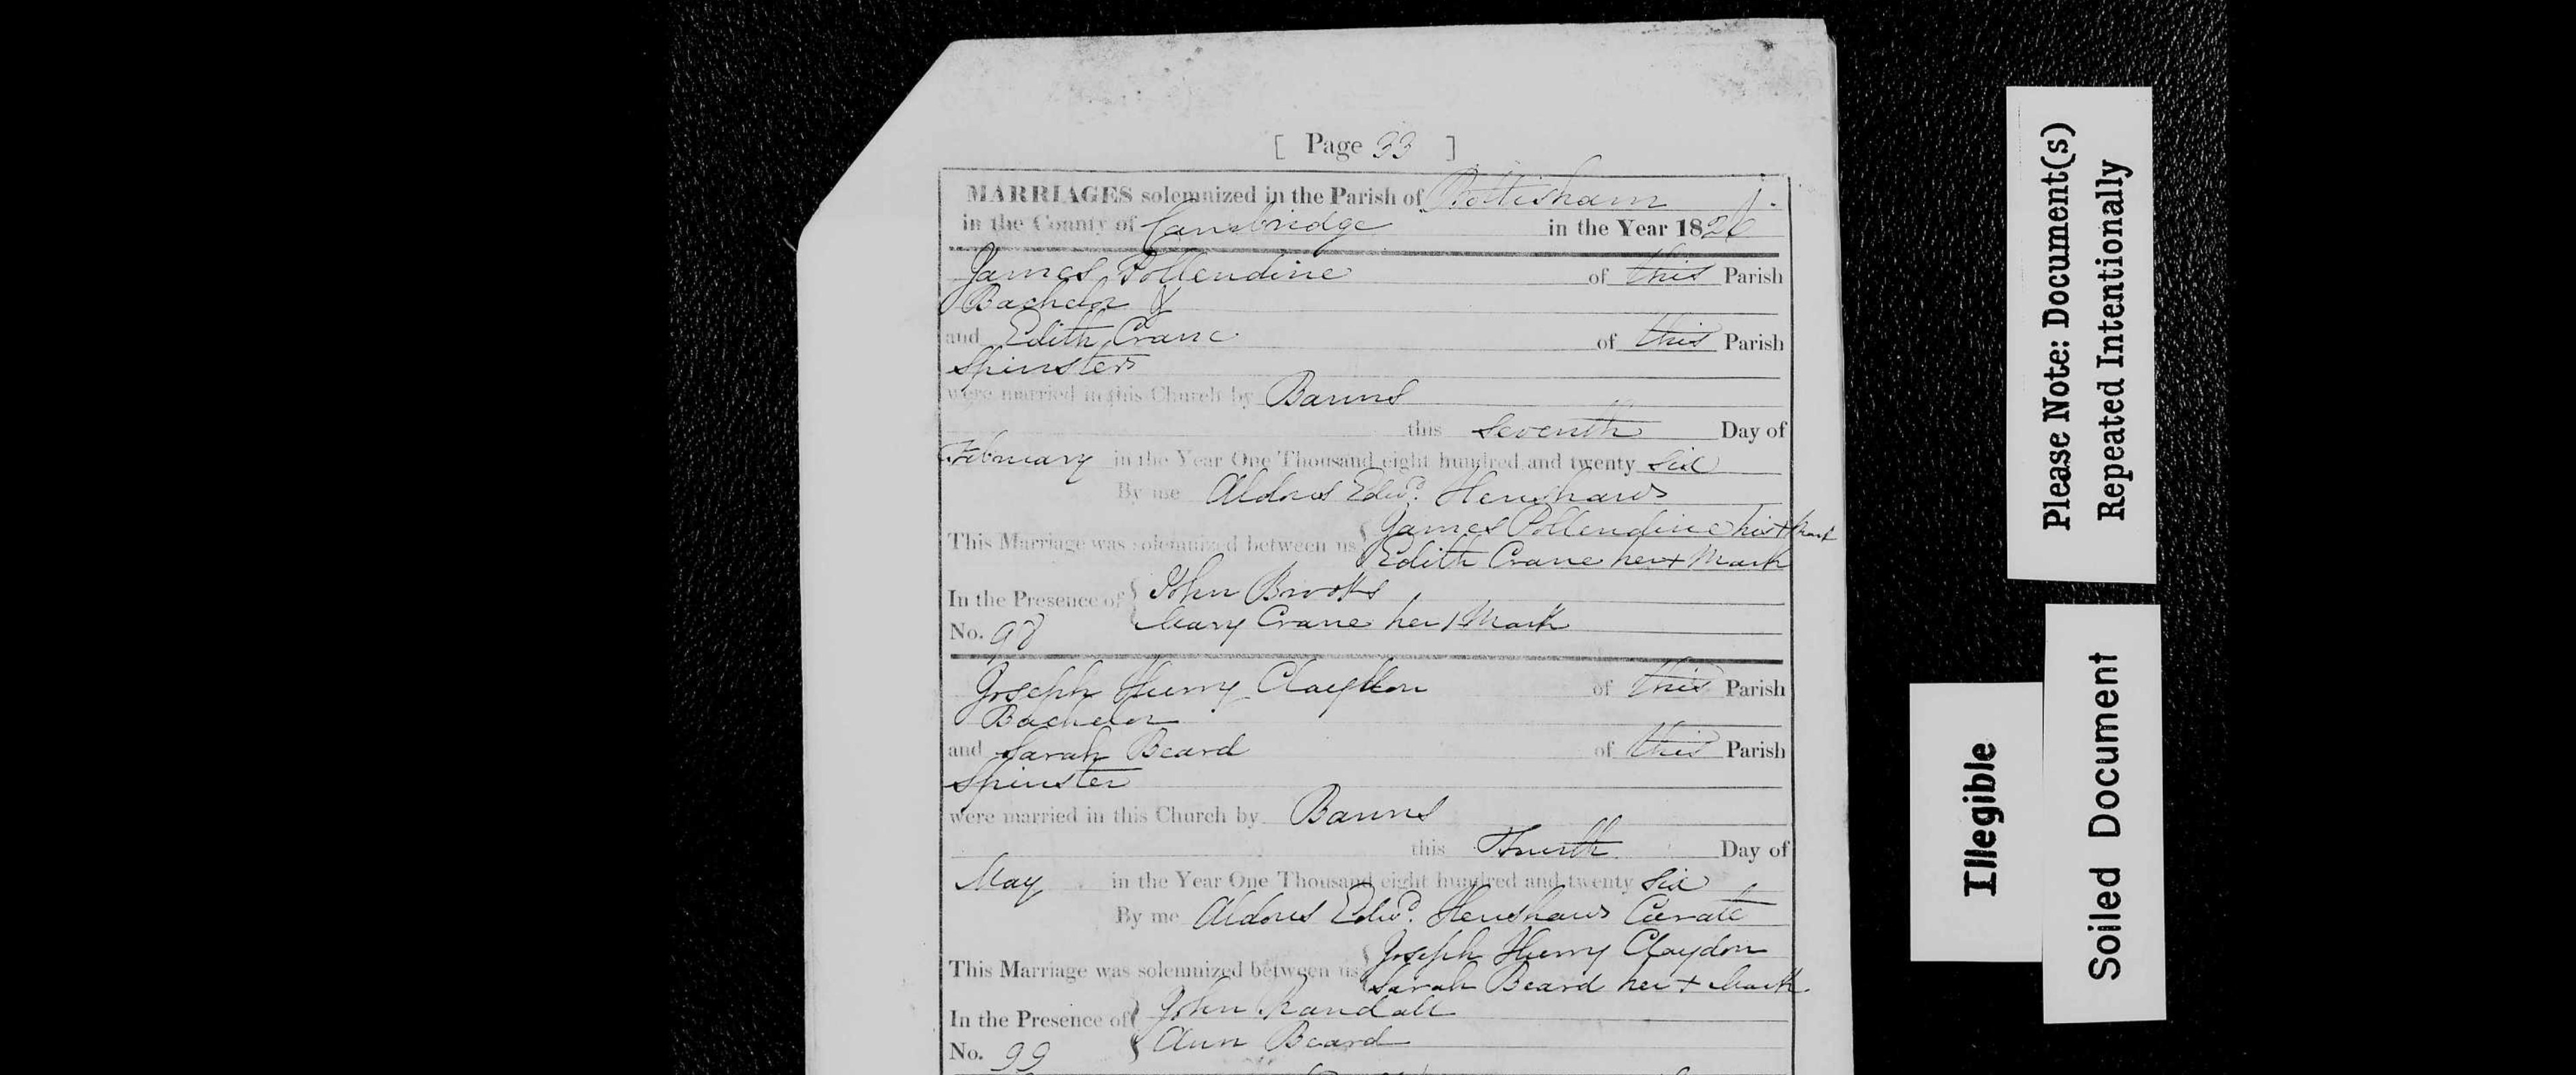 [ Page 33 ]
MARRIAGES solemnized in the Parish of Bottisham
in the County of Cambridge in the Year 1826
James Pollendine of this Parish
Bachelor &
and Edith Crane of this Parish
Spinster
were married in this Church by Banns
this seventh Day of
February in the Year One Thousand eight hundred and twenty six
By me Aldous Edwd. Henshaw
This Marriage was solemnized between us James Pollendine his + Mark
Edith Crane her + Mark
In the Presence of John Brooks
Mary Crane her / Mark
No. 98
Joseph Henry Claydon of this Parish
Bachelor
and Sarah Beard of this Parish
Spinster
were married in this Church by Banns
this Fourth Day of
May in the Year One Thousand eight hundred and twenty six
By me Aldous Edwd. Henshaw Curate
This Marriage was solemnized between us Joseph Henry Claydon
Sarah Beard her + Mark
In the Presence of John Randall
Ann Beard
No. 99
Please Note: Document(s)
Repeated Intentionally
Illegible
Soiled Document